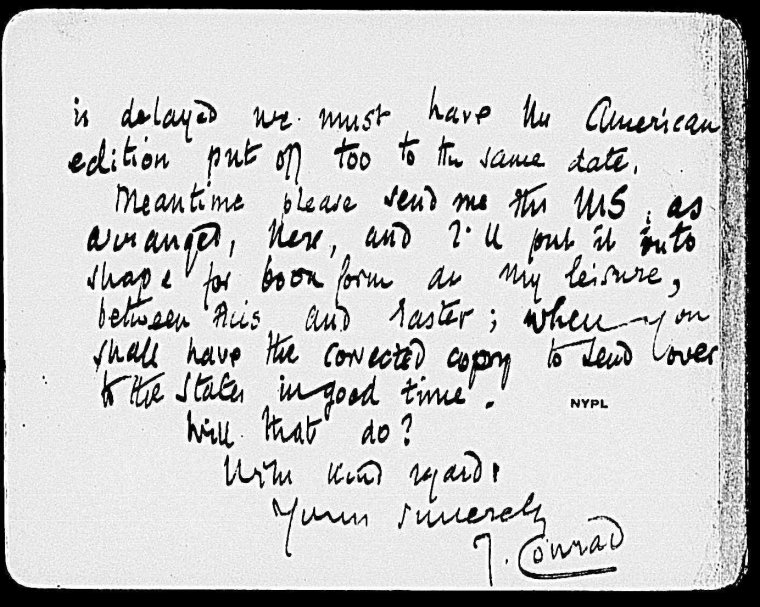 is delayed we must have the American
edition put off too to the same date.
Meantime please send me the MS, as
arranged, here, and I'll put it into
shape for book form at my leisure,
between this and Easter; when you
shall have the corrected copy to send over
to the States in good time.
NYPL
Will that do?
With kind regards
Yours sincerely
J. Conrad